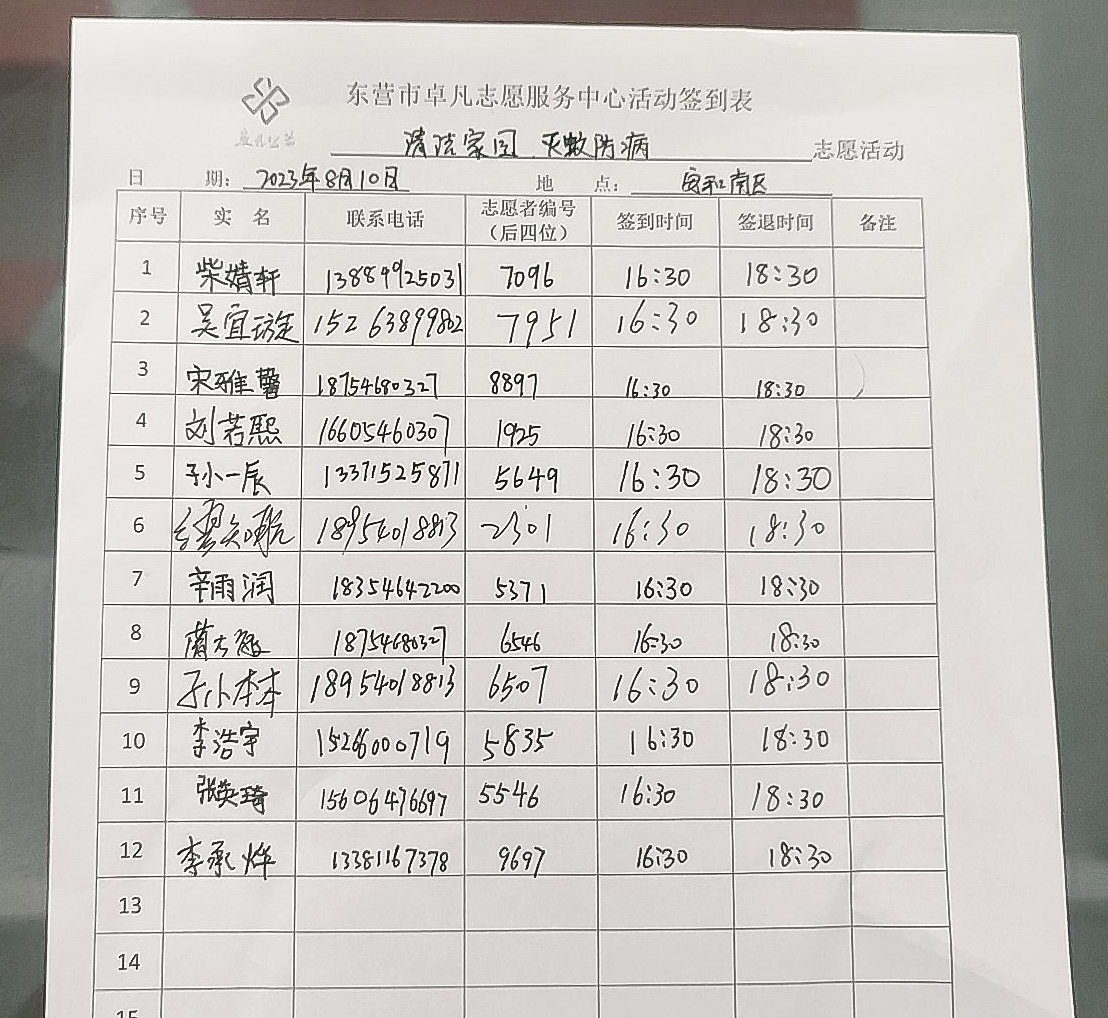 东营市卓凡志愿服务中心活动签到表
卓凡公益
清洁家园 灭蚊防病 志愿活动
日 期: 2023年8月10日 地 点: 安和南区
序号 实 名 联系电话 志愿者编号(后四位) 签到时间 签退时间 备注
1 柴婧轩 13889925031 7096 16:30 18:30
2 吴宜璇 15263899802 7951 16:30 18:30
3 宋雅馨 18754680327 8897 16:30 18:30
4 刘若熙 16605460307 1925 16:30 18:30
5 孙小一辰 13371525871 5649 16:30 18:30
6 缪知航 18954018813 2301 16:30 18:30
7 辛雨润 18354642200 5371 16:30 18:30
8 18754680327 6546 16:30 18:30
9 孙小本本 18954018813 6507 16:30 18:30
10 李浩宇 15266000719 5835 16:30 18:30
11 张英琦 15606476697 5546 16:30 18:30
12 李承烨 13381167378 9697 16:30 18:30
13
14
15